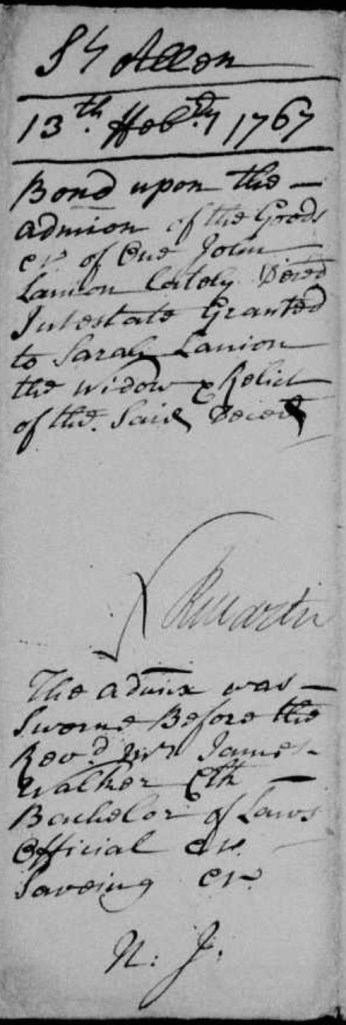 St Allen
13th. Feb:ry 1767
Bond upon the
admion of the Goods
&c of One John
Lanion lately Deced
Intestate Granted
to Sarah Lanion
the widow & Relict
of the. Said Deced
The admix was
Sworne Before the
Revd. Mr James
Walker Clk
Bachelor of Laws
Official &c.
Saveing &c.
N: J: